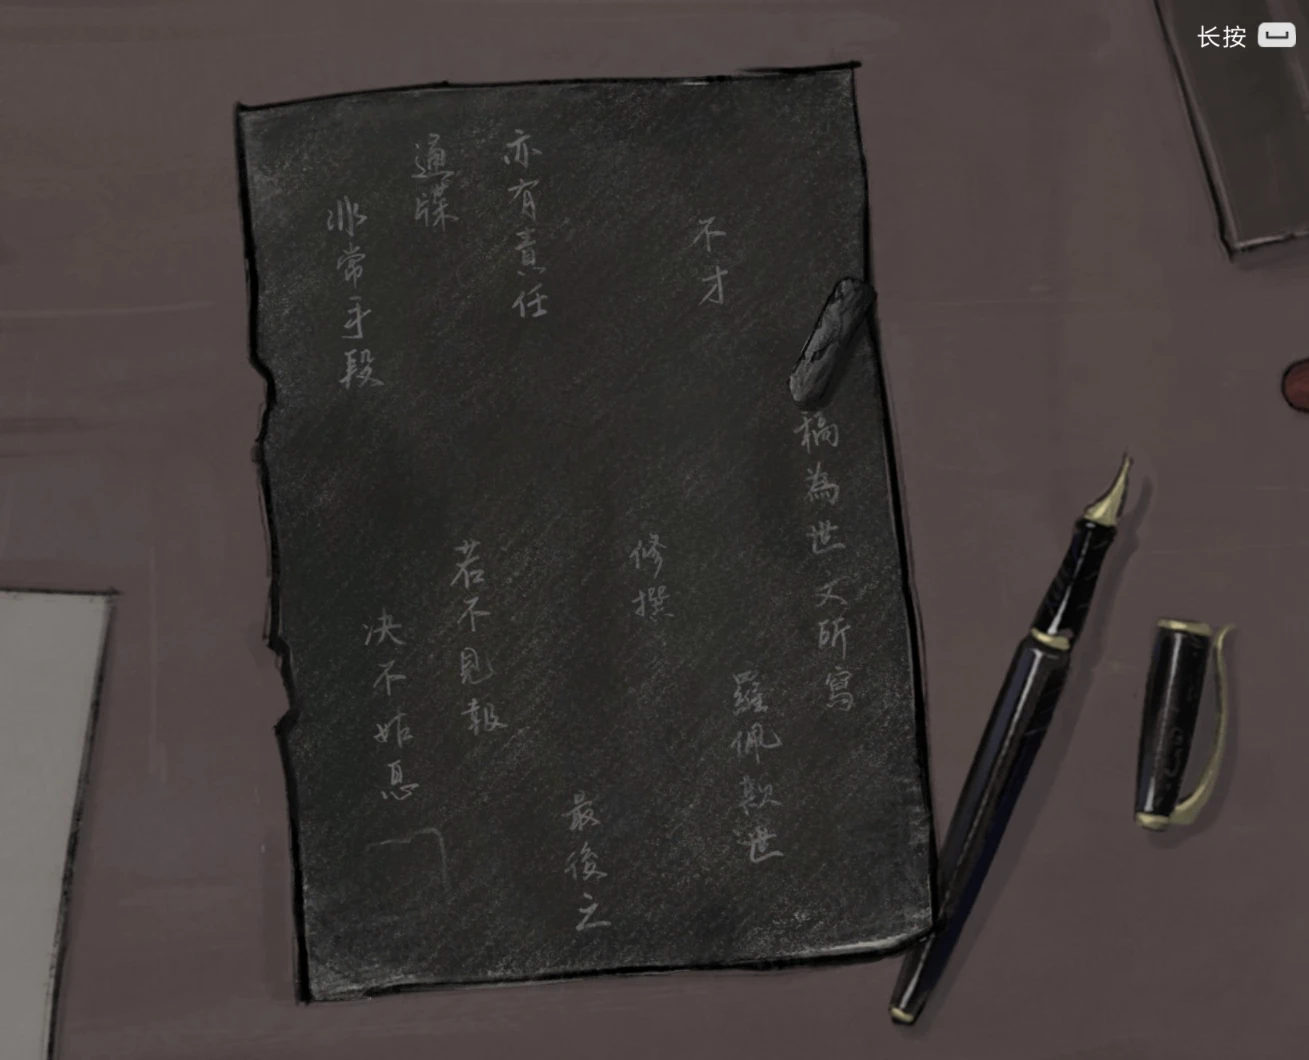 长按
稿為世文所寫
不才
羅佩欺世
修撰
亦有責任
最後之
通牒
若不見報
非常手段
決不姑息